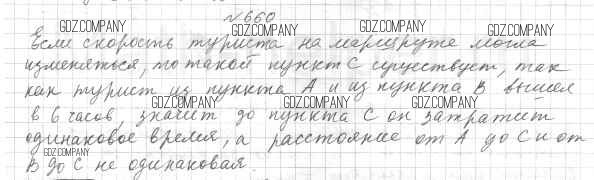 №660
GDZ.COMPANY GDZ.COMPANY GDZ.COMPANY GDZ.COMPANY
Если скорость туриста на маршруте могла
изменяться, то такой пункт С существует, так
как турист из пункта А и из пункта В вышел
GDZ.COMPANY GDZ.COMPANY GDZ.COMPANY
в 6 часов, значит до пункта С он затратит
одинаковое время, а расстояние от А до С и от
GDZ.COMPANY
В до С не одинаковая.